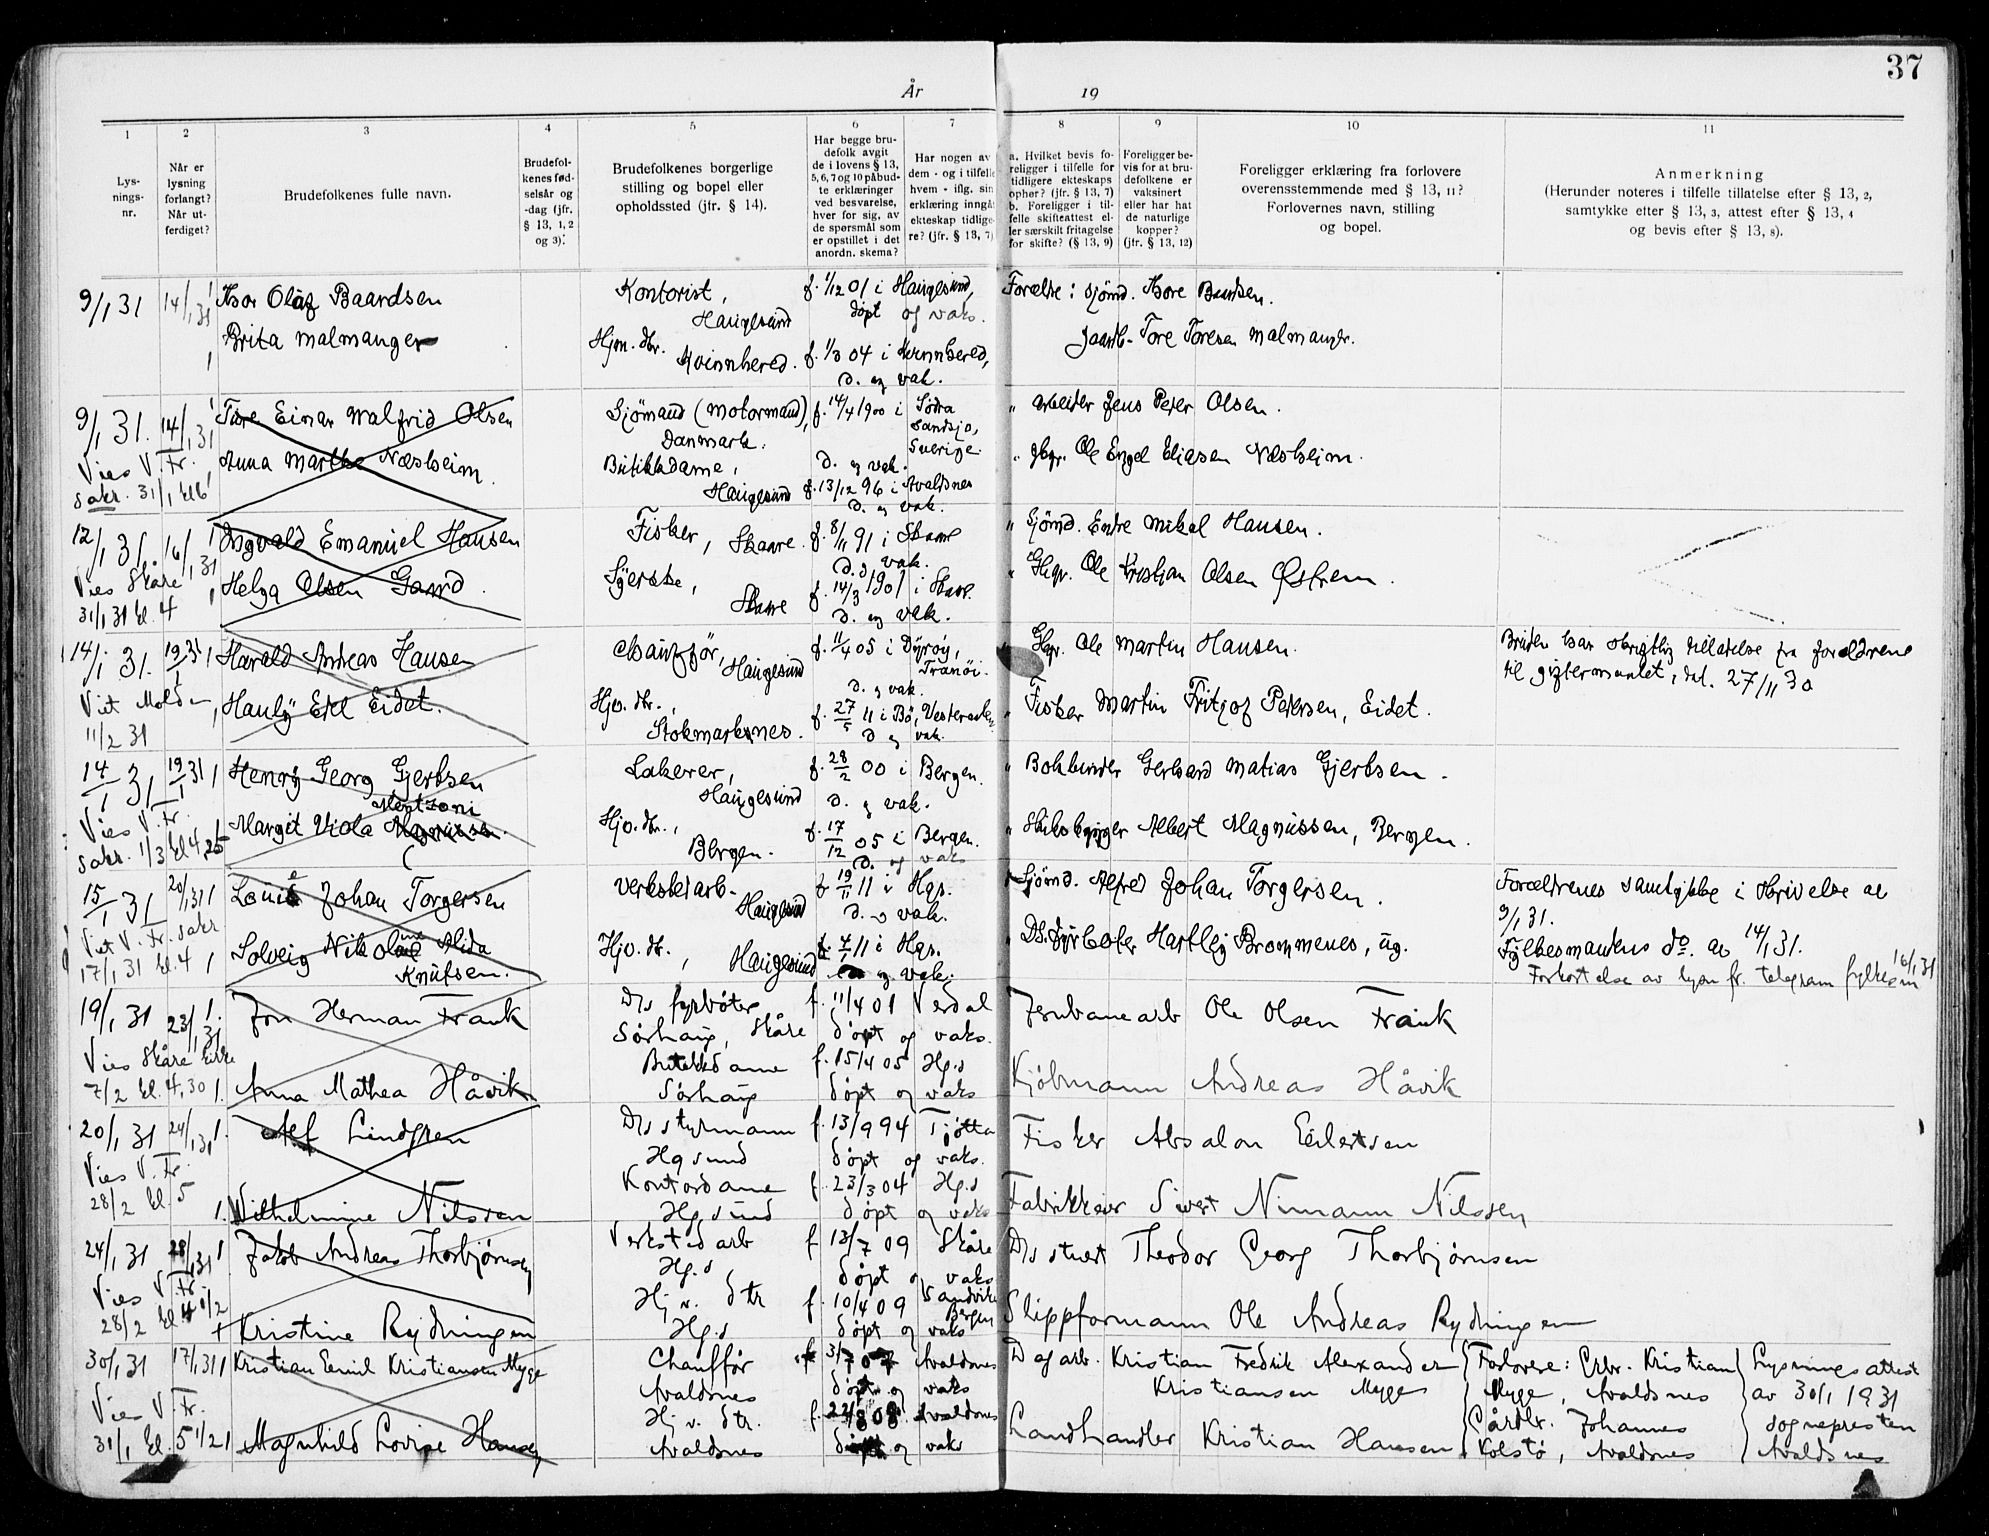 37
År 19
1 2 3 4 5 6 7 8 9 10 11
Lys-
nings-
nr.
Når er
lysning
forlangt?
Når ut-
ferdiget?
Brudefolkenes fulle navn.
Brudefol-
kenes fød-
selsår og
-dag (jfr.
§ 13, 1, 2
og 3).
Brudefolkenes borgerlige
stilling og bopel eller
opholdssted (jfr. § 14).
Har begge bru-
defolk avgit
de i lovens § 13,
5, 6, 7 og 10 påbud-
te erklæringer
ved besvarelse,
hver for sig, av
de spørsmål som
er opstillet i det
anordn. skema?
Har nogen av
dem - og i tilfelle
hvem - iflg. sin
erklæring inngå
ekteskap tidlige-
re? (jfr. § 13, 7)
a. Hvilket bevis fo-
religger i tilfelle for
tidligere ekteskaps
ophør? (jfr. § 13, 7)
b. Foreligger i til-
felle skifteattest el-
ler særskilt fritagelse
for skifte? (§ 13, 9)
Foreligger be-
vis for at bru-
defolkene er
vaksinert
eller har hat
de naturlige
kopper?
(jfr. § 13, 12)
Foreligger erklæring fra forlovere
overensstemmende med § 13, 11?
Forlovernes navn, stilling
og bopel.
Anmerkning
(Herunder noteres i tilfelle tillatelse efter § 13, 2,
samtykke efter § 13, 3, attest efter § 13, 4
og bevis efter § 13, 8).
9/1 31 14/1 31 Thor Olaf Baardsen Kontorist, f. 1/12 01 i Haugesund, Forældre: sjømd. Thore Baardsen.
Haugesund døpt og vaks.
Brita Malmanger Hjm. dtr. Kvinnhered. f. 1/3 04 i Kvinnhered, Tore Toresen Malmanger.
d. og vak.
9/1 31. 14/1 31 Ture Einar Walfrid Olsen Sjømand (motormand), f. 14/4 1900 i Södra " arbeider Jens Peter Olsen.
Danmark. Sandsjö, Sverige.
Vies V. Fr. d. og vak.
Anna Marthe Næsheim. Butikkdame, Haugesund f. 13/12 96 i Avaldsnes " gbr. Ole Engel Eliasen Næsheim.
sakr. 31/1 kl 6 d. og vak.
12/1 31. 16/1 31 Ingvald Emanuel Hansen Fisker, Skaare. f. 8/11 91 i Skaare " Sjømd. Endre Mikal Hansen.
Vies Skåre d. og vak.
31/1 31 kl. 4 Helga Olsen Gard. Syerske, Skaare f. 14/3 1901 i Skaare. " Gbr. Ole Kristian Olsen Østrem.
d. og vak.
14/1 31. 19/1 31 Harald Andreas Hansen Chauffør, Haugesund f. 11/4 05 i Dyrøy, Tranøi. " Gbr. Ole Martin Hansen. Bruden har skriftlig tillatelse fra forældrene
d. og vak. til giftermaalet, dat. 27/11 30
Viet Molde
11/2 31 Eidet. Hjv. dtr., Stokmarknes. f. 27/5 11 i Bø, Vesteraalen " Fisker Martin Fritjof Petersen, Eidet.
d. og vak.
14/1 31 19/1 31 Henry Georg Gjertsen Lakerer, Haugesund f. 28/2 00 i Bergen. " Bokbinder Gerhard Matias Gjertsen.
d. og vak.
Mentzoni
Vies V. Fr. Margit Viola Magnussen. Hjv. dtr., Bergen. f. 17/12 05 i Bergen. " Albert Magnussen, Bergen.
sakr. 1/3 kl 4,25 d. og vaks
15/1 31 20/1 31 Louis Johan Torgersen Verkstedarb. Haugesund f. 19/11 11 i Hgs. " Sjømd. Alfred Johan Torgersen. Forældrenes samtykke i skrivelse av
d. og vak. 9/1 31.
Viet V. Fr. sakr.
17/1 31 kl. 4 Solveig Nikoline Alida Knutsen. Hjv. dtr., Haugesund f. 4/1 11 i Hgs. " DS. fyrbøter Hartvig Brommenes, ug. Fylkesmandens do. av 14/1 31.
og vak. Forkortelse av lysn fr. telegram fylkesm 16/1 31
19/1 31 23/1 31 Jon Herman Frank D/s fyrbøter f. 11/4 01 Verdal Jernbanearb Ole Olsen Frank
Sørhaug, Skåre døpt og vaks.
Vies Skåre kirke
7/2 kl. 4,30 Anna Mathea Håvik Butikkdame f. 15/4 05 Hg.s Kjøbmann Andreas Håvik
Sørhaug døpt og vaks
20/1 31 24/1 31 Alf Lindgren D/s styrmann f. 13/9 94 Tjøtta Fisker Absalon Edvertsen
Hgsund døpt og vaks.
Vies V. Fr.
28/2 kl. 5 Wilhelmine Nilssen Kontordame f. 23/3 04 Hg.s Fabrikkeier Sivert Nimann Nilssen
Hg.sund døpt og vaks
24/1 31 28/1 31 Jakob Andreas Thorbjørnsen Verksted arb f 13/7 09 Skåre D/s stuert Theodor Georg Thorbjørnsen
Hg.s døpt og vaks
Vies V. Fr.
28/2 kl. 4 1/2 Kristine Rydningen Hj v. dtr f. 10/4 09 Sandviken Bergen Slippformann Ole Andreas Rydningen
Hg.s døpt og vaks
30/1 31 17/1 31 Kristian Emil Kristiansen Myge Chauffør f 3/7 07 Avaldsnes Dagarb. Kristian Fredrik Alexander Forlovere: Erbr. Kristian Lysningsattest
Avaldsnes døpt og vaks Kristiansen Myge Myge, Avaldsnes av 30/1 1931
Vies V Fr.
31/1 kl. 5 1/2 Magnhild Lovise Hansen Hj v. dtr. f. 22/8 08 Avaldsnes Landhandler Kristian Hansen Gårdbr. Johannes sognepresten
Avaldsnes døpt og vaks Kolstø, Avaldsnes Avaldsnes